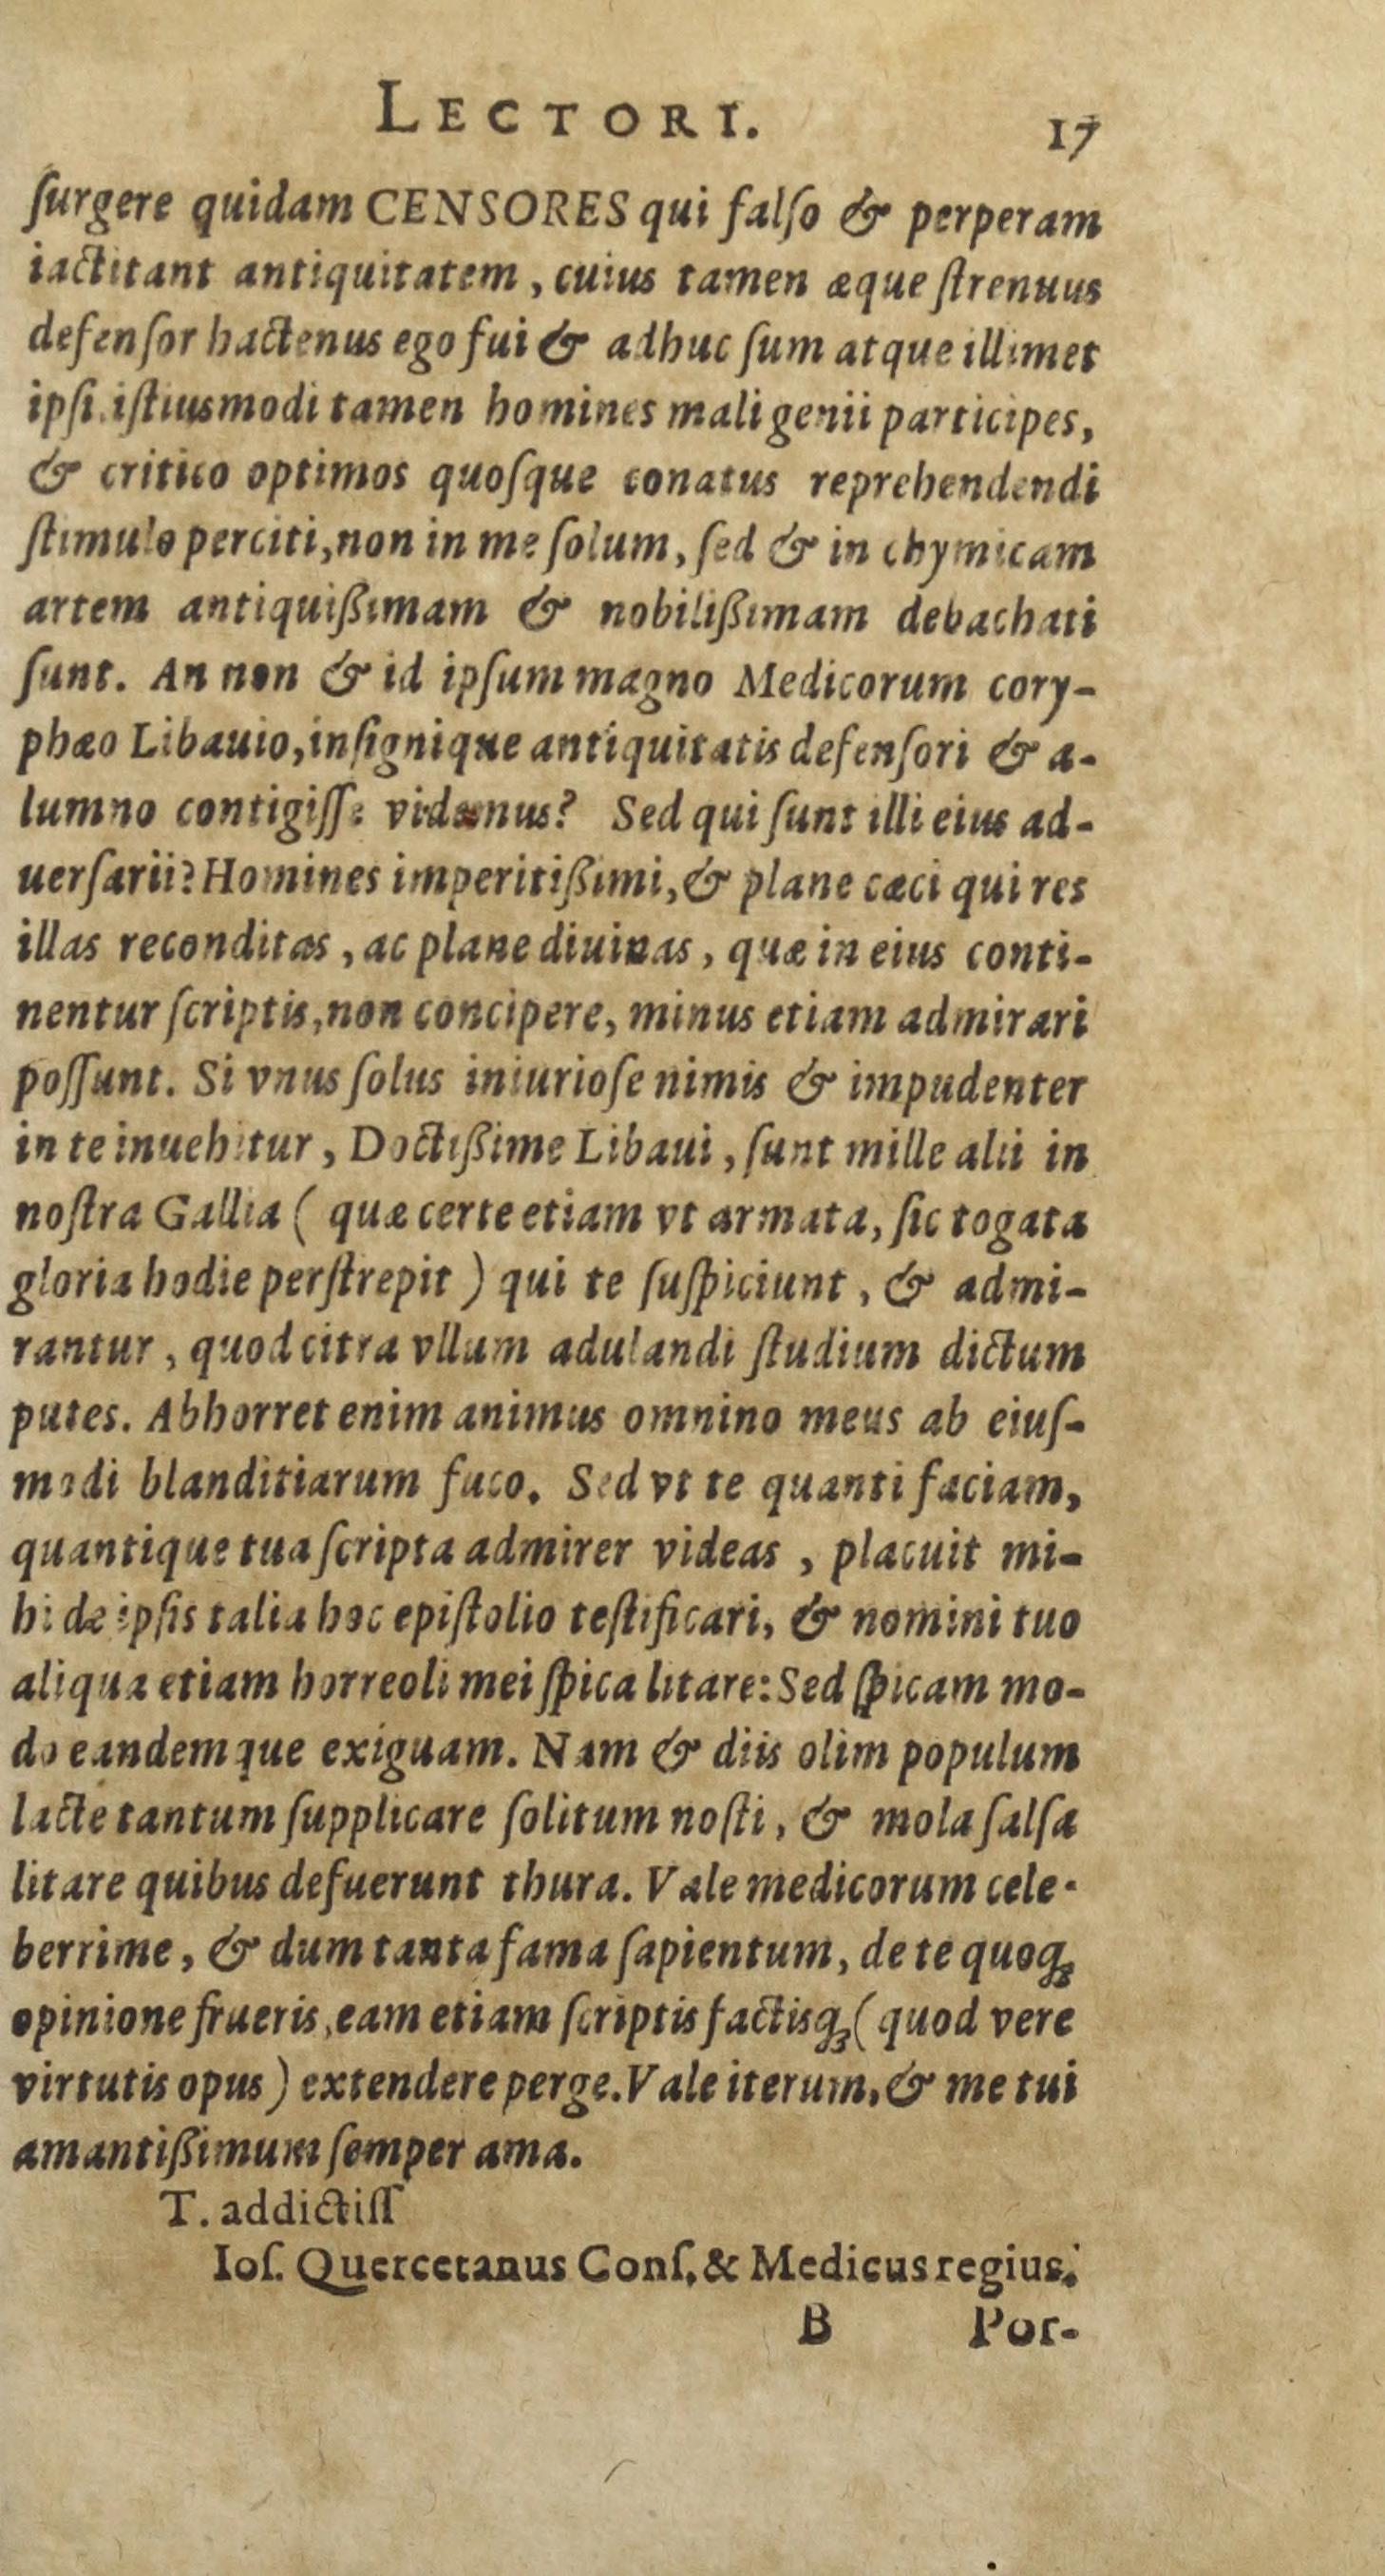 LECTORI. 17
ſurgere quidam CENSORES qui falſo & perperam
iactitant antiquitatem, cuius tamen æque ſtrenuus
defenſor hactenus ego fui & adhuc ſum atque illimet
ipſi. iſtiusmodi tamen homines mali genii participes,
& critico optimos quoſque conatus reprehendendi
ſtimulo perciti, non in me ſolum, ſed & in chymicam
artem antiquißimam & nobilißimam debachati
ſunt. An non & id ipſum magno Medicorum cory-
phæo Libauio, inſignique antiquitatis defenſori & a-
lumno contigiſſe videmus? Sed qui ſunt illi eius ad-
uerſarii? Homines imperitißimi, & plane cæci qui res
illas reconditas, ac plane diuinas, quæ in eius conti-
nentur ſcriptis, non concipere, minus etiam admirari
poſſunt. Si vnus ſolus iniurioſe nimis & impudenter
in te inuehitur, Doctißime Libaui, ſunt mille alii in
noſtra Gallia ( quæ certe etiam vt armata, ſic togata
gloria hodie perſtrepit ) qui te ſuſpiciunt, & admi-
rantur, quod citra vllum adulandi ſtudium dictum
putes. Abhorret enim animus omnino meus ab eiuſ-
modi blanditiarum fuco. Sed vt te quanti faciam,
quantique tua ſcripta admirer videas, placuit mi-
hi de ipſis talia hoc epiſtolio teſtificari, & nomini tuo
aliqua etiam horreoli mei ſpica litare: Sed ſpicam mo-
do eandemque exiguam. Nam & diis olim populum
lacte tantum ſupplicare ſolitum noſti, & mola ſalſa
litare quibus defuerunt thura. Vale medicorum cele-
berrime, & dum tanta fama ſapientum, de te quoqꝫ
opinione frueris, eam etiam ſcriptis factisqꝫ ( quod vere
virtutis opus ) extendere perge. Vale iterum, & me tui
amantißimum ſemper ama.
T. addictiſſ
Ioſ. Quercetanus Conſ. & Medicus regius.
B Por-